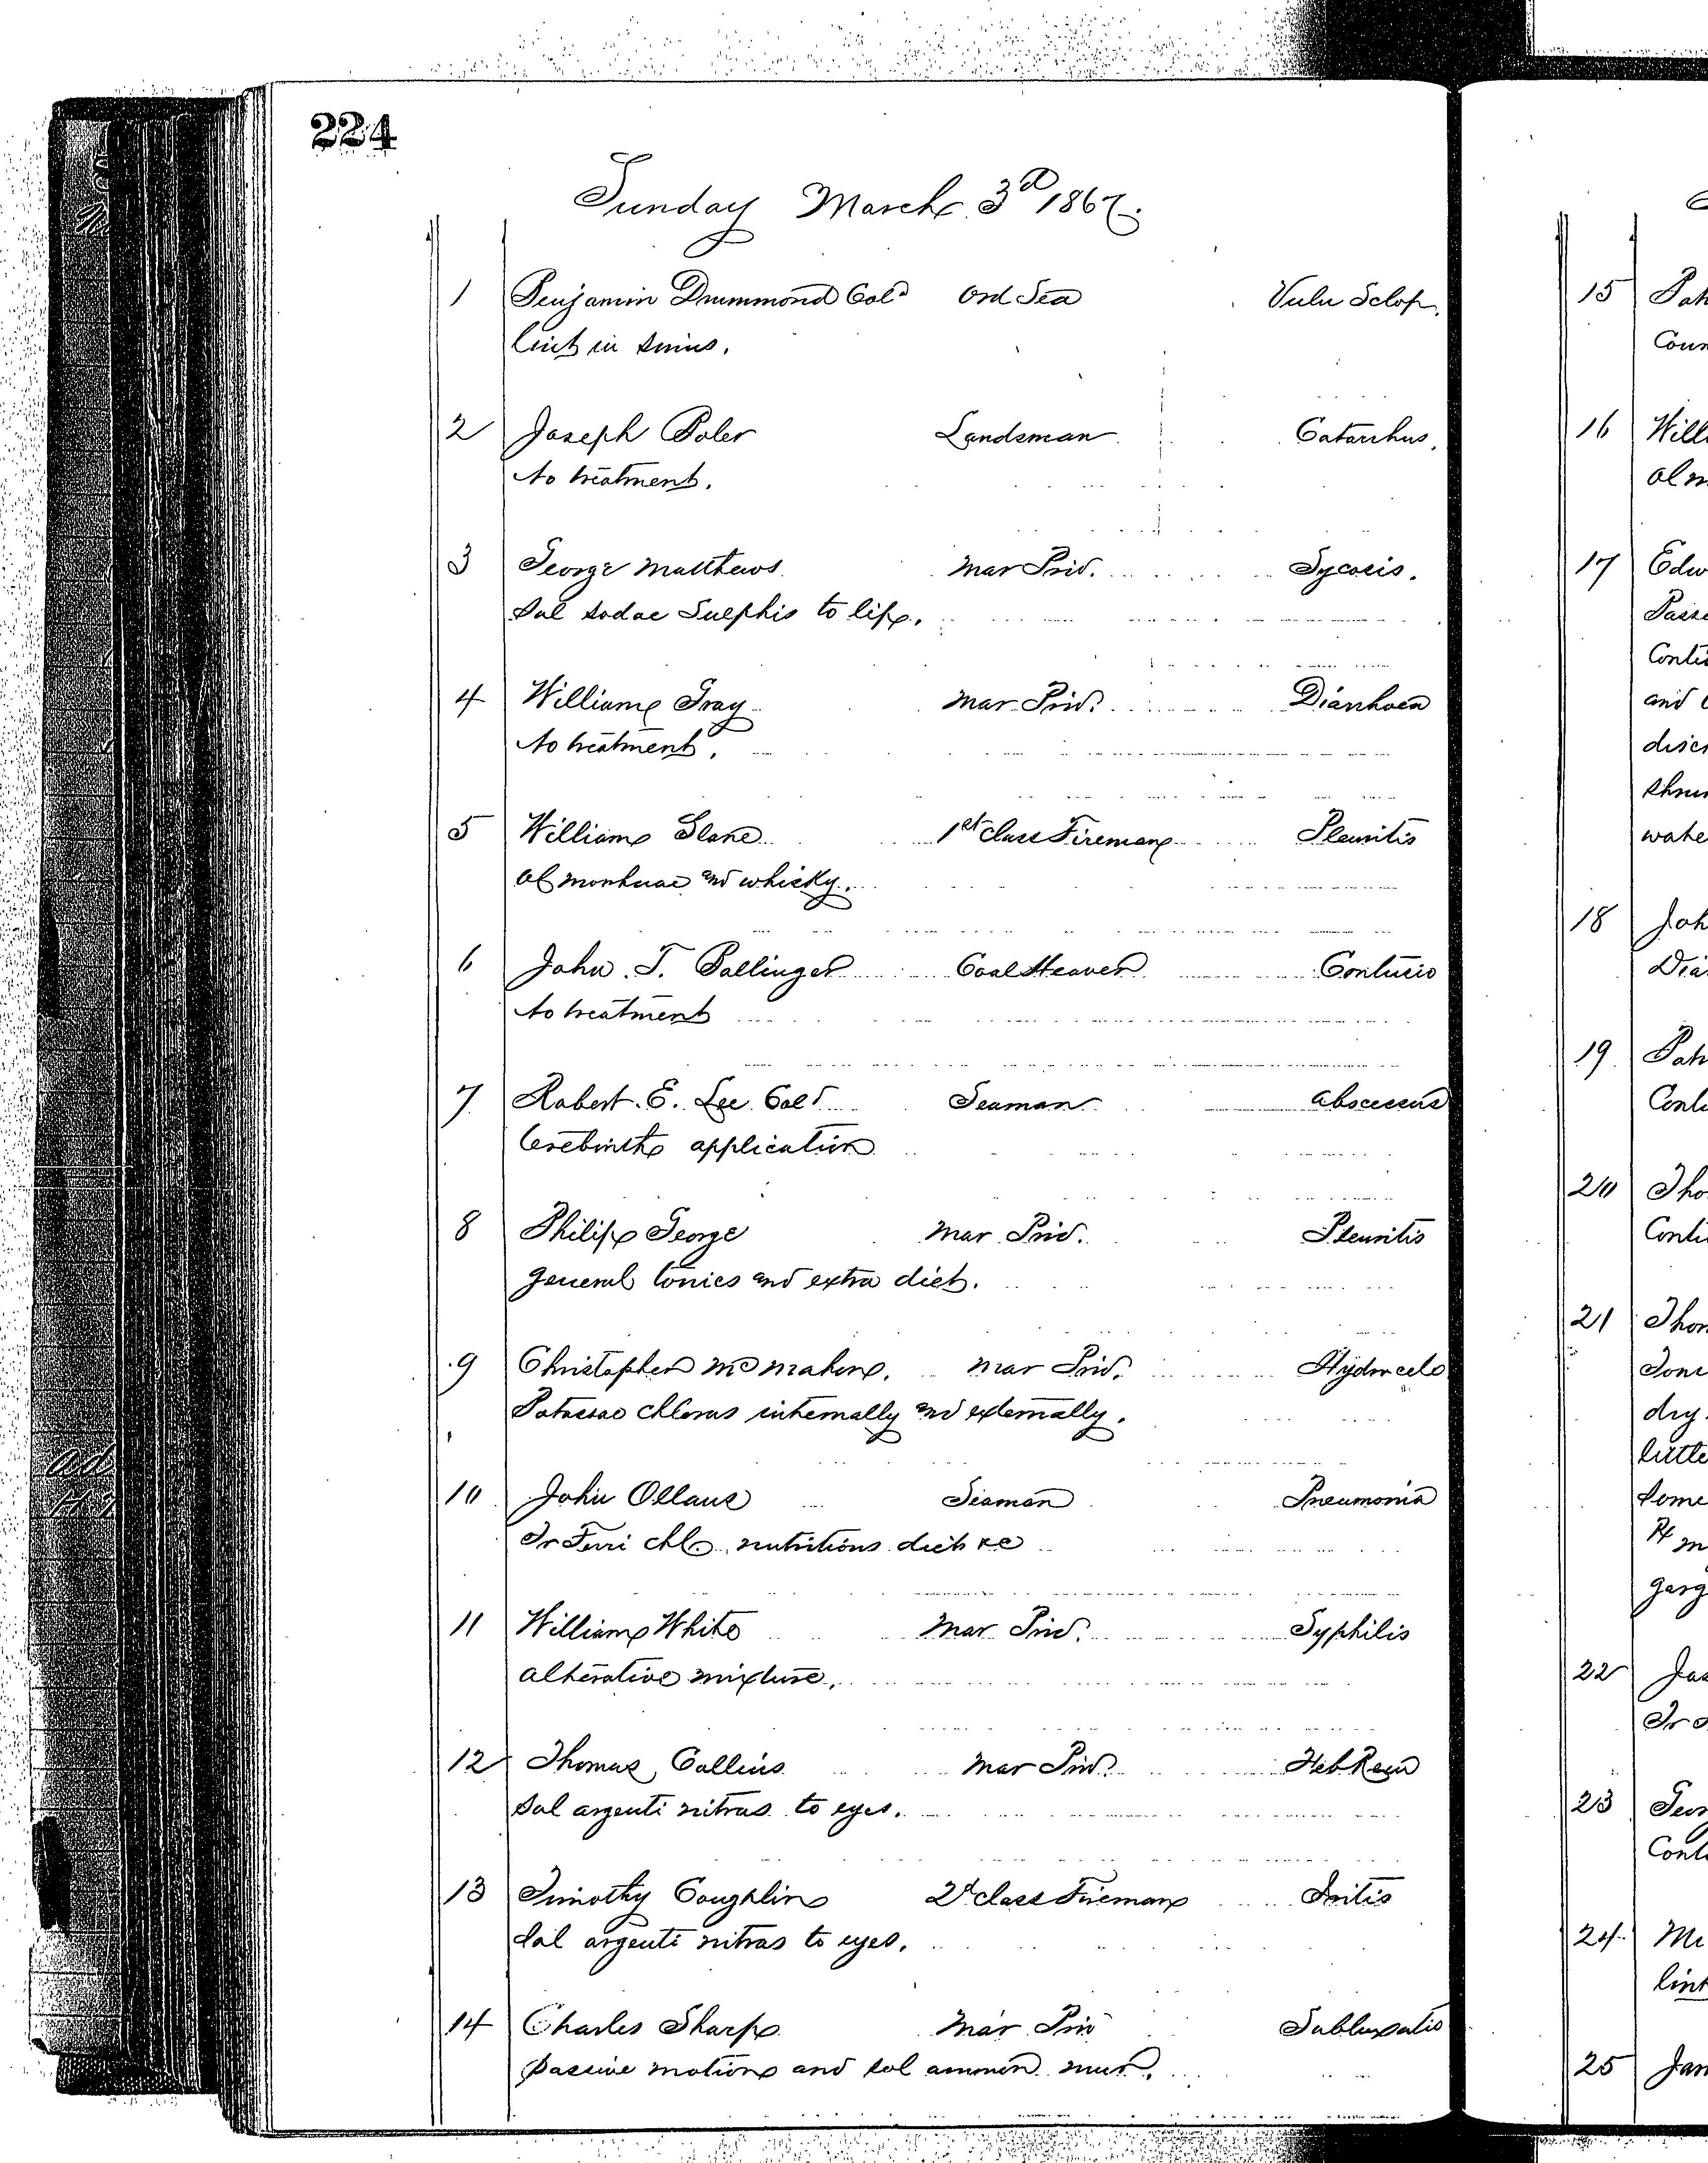 224
Sunday March 3d 1867.
1 Benjamin Drummond Cold Ord Sea Vuln Sclop.
lint in sinus.
2 Joseph Boler Landsman Catarrhus.
No treatment.
3 George Matthews Mar Priv. Sycosis.
Sol sodae Sulphis to lip.
4 William Gray Mar Priv. Diarrhoea
No treatment.
5 William Slane 1st class Fireman Pleuritis
Ol morrhuae and whisky.
6 John T. Bollinger Coal Heaver Contusio
No treatment
7 Robert. E. Lee Cold Seaman Abscessus
Terebinth application
8 Philip George Mar Priv. Pleuritis
General tonics and extra diet.
9 Christopher McMahon. Mar Priv. Hydrocele
Potassae chloras internally and externally.
10 John Ollaus Seaman Pneumonia
Tr Ferri chl. nutritious diet &c
11 William White Mar Priv. Syphilis
Alterative mixture.
12 Thomas Collins Mar Priv. Feb Rem
Sol argenti nitras to eyes.
13 Timothy Coughlin 2d class Fireman Iritis
Sol argenti nitras to eyes.
14 Charles Sharp Mar Priv Subluxatio
Passive motion and sol ammon mur.
15
16 Will
Ol m
17 Edw
Passe
Conti
and
discr
water
18 Joh
Dia
19 Pat
Conti
20 Tho
Conti
21 Thom
Toni
dry
little
some
℞ m
garg
22 Jas
Tr
23 Geor
Conti
24 Mi
lint
25 Jam